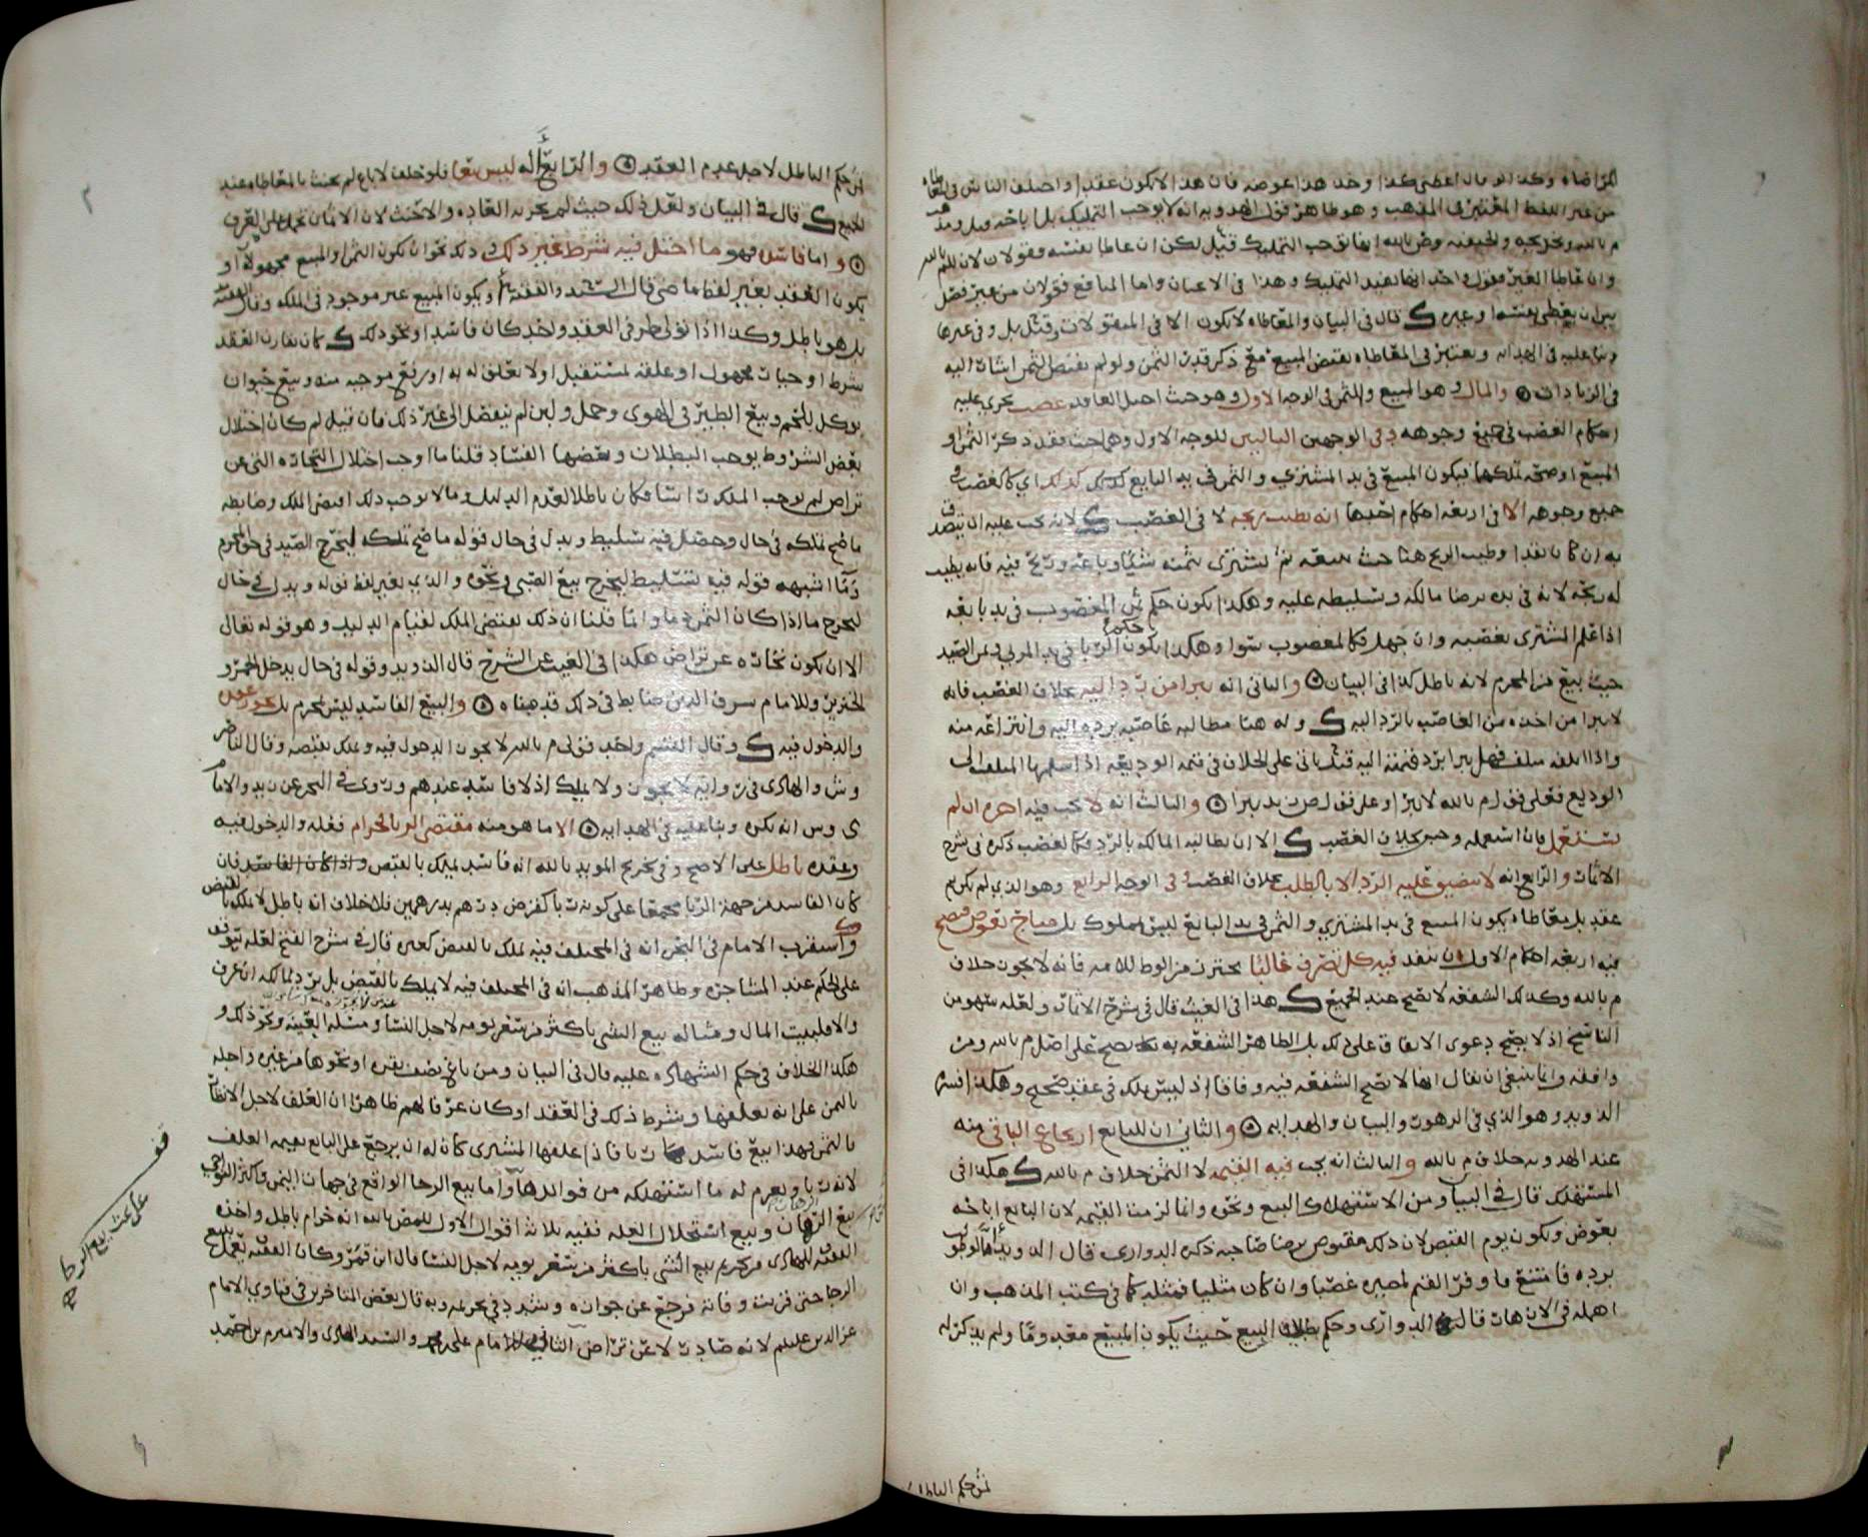 المراضاه وكذا لو قال اعطني كذا وخذ هذا عوضه فان هذا لا يكون عقدا واختلف الناس في المعاطاه
من غير اللفظ المعتبر في المذهب وهو ظاهر قول الهدويه انه لا يوجب التمليك بل اباحه
م بالله وتخريجه ولحنيفه وص بالله انها توجب التمليك قيل لكن ان عاطا بنفسه فقولان
وان عاطا الغير فقول واحد انها تفيد التمليك وهذا في الاعيان واما المنافع فقولان من غير فصل
بين ان يعطي بنفسه او غيره قال في البيان والمعاطاه لا تكون الا في المنقولات وقيل بل وفي غيرها
في الهدايه ويعتبر في المعاطاه بقبض المبيع مع ذكر قدر الثمن ولو لم يقبض الثمن اشار اليه
في الزيادات والمال وهو المبيع والثمن في الوجه الاول وهو حيث اختل العاقد غصب يجري عليه
احكام الغصب في جميع وجوهه وفي الوجهين التاليين للوجه الاول وهما حيث فقد ذكر الثمن او
المبيع او صحه تملكهما فيكون المبيع في يد المشتري والثمن في يد البايع كذلك اي كالغصب في
جميع وجوهه الا في اربعه احكام احدها انه يطيب ربحه لا في الغصب لانه يجب عليه ان يتصدق
به ان كانا نقدا وطيب الربح هنا حيث ثم اشترى بثمنه شيئا وباعه وربح فيه فانه يطيب
له ربحه لانه في يده برضا مالكه وتسليطه عليه وهكذا يكون حكم ثمن المغصوب في يد بايعه
اذا علم المشتري بغصبه وان جهل فكالمغصوب سوا وهكذا يكون حكم الربا في يد المربي وثمن الصيد
حيث بيع من المحرم لانه باطل كذا في البيان والثاني انه يبرا من رد اليه بخلاف الغصب فانه
لا يبرا من اخذه من الغاصب بالرد اليه وله هنا مطالبه غاصبه برده اليه وانتزاعه منه
واذا اتلفه متلف فهل يبرا برد قيمته اليه قيل ياتي على الخلاف في قيمه الوديعه اذا سلمها المتلف الى
الوديع فعلى قول م بالله لا يبرا وعلى قول ض زيد يبرا والثالث انه لا يجب فيه اجره ان لم
يستعمل فان استعمله وجبت بخلاف الغصب الا ان يطالبه المالك بالرد فكالغصب ذكره في شرح
الاثمار والرابع انه لا يتضيق عليه الرد الا بالطلب بخلاف الغصب وفي الوجه الرابع وهو الذي لم يكن ثم
عقد بل معاطاه يكون المبيع في يد المشتري والثمن في يد البايع ليس بمملوك بل مباح بعوض فيصح
فيه اربعه احكام الاول ان ينفذ فيه كل تصرف غالبا يحترز من الوطي للامه فانه لا يجوز خلاف
م بالله وكذلك الشفعه لا تصح عند الجميع هذا في الغيث قال في شرح الاثمار ولعله سهو من
الناسخ اذ لا يصح دعوى الاتفاق على ذلك بل الظاهر الشفعه به تصح على اصل م بالله ومن
وافقه وانما ينبغي ان يقال انها لا تصح الشفعه فيه وفاقا اذ ليس بملك في عقد صحيح وهكذا
الدويد وهو الذي في الزهور والبيان والهدايه والثاني ان للبايع ارتجاع الباقي منه
عند الهدويه خلاف م بالله والثالث انه يجب فيه القيمه لا الثمن خلاف م بالله هكذا في
المستهلك قال في البيان ومن الاستهلاك البيع ونحوه وانما لزمت القيمه لان البايع اباحه
بعوض وتكون يوم القبض لان ذلك مقبوض برضا صاحبه ذكره الدواري قال الدويد
برده فامتنع ما وفر القيم لمصيره غصبا وان كان مثليا فمثله كما في كتب المذهب وان
اهمله في الازهار قال الدواري وحكم بطلان البيع حيث يكون المبيع معدوما ولم يذكر له
ثمن حكم الباطل
ثمن حكم الباطل لاجل عدم العقد والرابع انه ليس بيعا فلو حلف لا باع لم يحنث بالمعاطاه عند
الجميع قال في البيان ولعل ذلك حيث لم يجر به العاده والا حنث لان الايمان تحمل على العرف
واما فاسد وهو ما اختل فيه شرط غير ذلك وذلك نحو ان يكون الثمن او المبيع مجهولا او
يكون العقد بغير لفظ ماضي قال السيد والفقيه او يكون المبيع غير موجود في الملك وقال الفقيه
بل هو باطل وكذا اذا تولى طرفي العقد واحد كان فاسدا ونحو ذلك كان يقارن العقد
شرط او خيار مجهول او علقه لمستقبل او لا تعلق له به او رفع موجبه منه وبيع حيوان
يوكل للحم وبيع الطير في الهوى وحمل ولبن لم ينفصل الى غير ذلك فان قيل لم كان اختلال
بعض الشروط يوجب البطلان وبعضها الفساد قلنا ما اوجب اختلال التجاره التي عن
تراض لم يوجب الملك راسا فكان باطلا لعدم الدليل وما لا يوجب ذلك اقتضى الملك وضابطه
ما صح تملكه في حال وحصل فيه تسليط وبدل في حال قوله ما صح تملكه ليخرج الصيد في حق المحرم
وما اشبهه قوله فيه تسليط ليخرج بيع الصبي ونحوه والذي بغير لفظ قوله وبدل في حال
ليخرج ما اذا كان الثمن دما وانما قلنا ان ذلك يقتضي الملك لقيام الدليل وهو قوله تعالى
الا ان تكون تجاره عن تراض هكذا في الغيث الشرح قال الدويد وقوله في حال يدخل الخمر و
الخنزير وللامام شرف الدين ضابط في ذلك قد هنا ه والبيع الفاسد ليس بمحرم بل يجوز عقده
والدخول فيه وقال القسم واحد قولي م بالله لا يجوز الدخول فيه ويملك بقبضه وقال الناصر
وش والهادي في روايه لا يجوز ولا يملك اذ لا فاسد عندهم وروى في البحر عن زيد والامام
ى وس انه يكره في الهدايه الا ما هو منه مقتضى الربا فحرام فعله والدخول فيه
وعقده باطل على الاصح وفي تخريج المويد بالله انه فاسد يملك بالقبض واذا كان الفاسد فان
كان الفاسد من جهه الربا مجمعا على كونه ربا كقرض درهم بدرهمين فلا خلاف انه باطل لا يملك بالقبض
واستقرب الامام في البحر انه في المختلف فيه يملك بالقبض كغيره قال في شرح الفتح لعله يتوقف
على الحكم عند المشاجره وظاهر المذهب انه في المختلف فيه لا يملك بالقبض بل يرد لمالكه ان عرف
والا فلبيت المال ومثاله بيع الشي باكثر من سعر يومه لاجل النسا ومسئله العينه ونحو ذلك و
هكذا الخلاف في حكم الشهاده عليه قال في البيان ومن باع نصف بقره او نحوها من غيره واجله
بالثمن على انه يعلفها وشرط ذلك في العقد او كان عرفا لهم ظاهرا ان العلف لاجل الانظار
بالثمن فهذا بيع فاسد ربا فاذا علفها المشتري كان له ان يرجع على البايع بقيمه العلف
لانه ربا ويغرم له ما استهلكه من فوايدها واما بيع الرجا الواقع في جهات اليمن في اكثر النواحي
بيع الرهان وبيع استحلال الغله ففيه ثلاثه اقوال الاول للمص بالله انه حرام باطل واخذه
الفقيه للهادي من تحريم بيع الشي باكثر من سعر يومه لاجل النسا قال ابن قمر وكان الفقيه يعمل بيع
الرجا حتى قربت وفاته فرجع عن جوازه وشدد في تحريمه وبه قال بعض المتاخرين في فتاوي الامام
عز الدين عليلم لانه صادر لا عن تراض الثاني للامام علي محمد والسيد الهادي والامير م بن احمد
قف
على بحث بيع الرجا